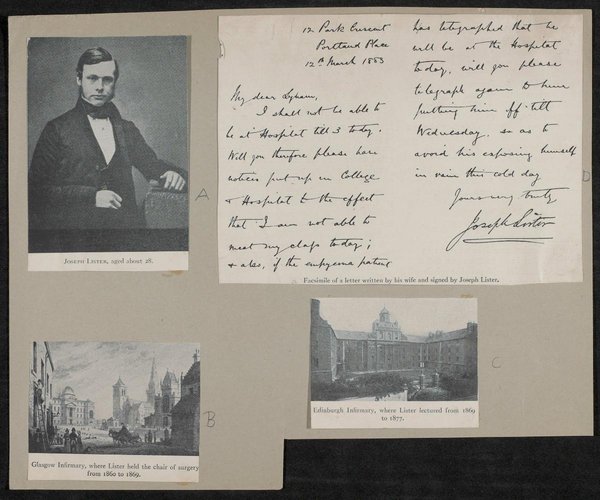 JOSEPH LISTER, aged about 28.
A
12 Park Crescent
Portland Place
12th March 1883
My dear Lynam,
I shall not be able to
be at Hospital till 3 today.
Will you therefore please have
notices put up in College
& Hospital to the effect
that I am not able to
meet my class today;
& also, if the empyema patient
has telegraphed that he
will be at the Hospital
today, will you please
telegraph again to him
putting him off till
Wednesday, so as to
avoid his exposing himself
in vain this cold day
Yours very truly
Joseph Lister
D
Facsimile of a letter written by his wife and signed by Joseph Lister.
Glasgow Infirmary, where Lister held the chair of surgery
from 1860 to 1869.
B
Edinburgh Infirmary, where Lister lectured from 1869
to 1877.
C